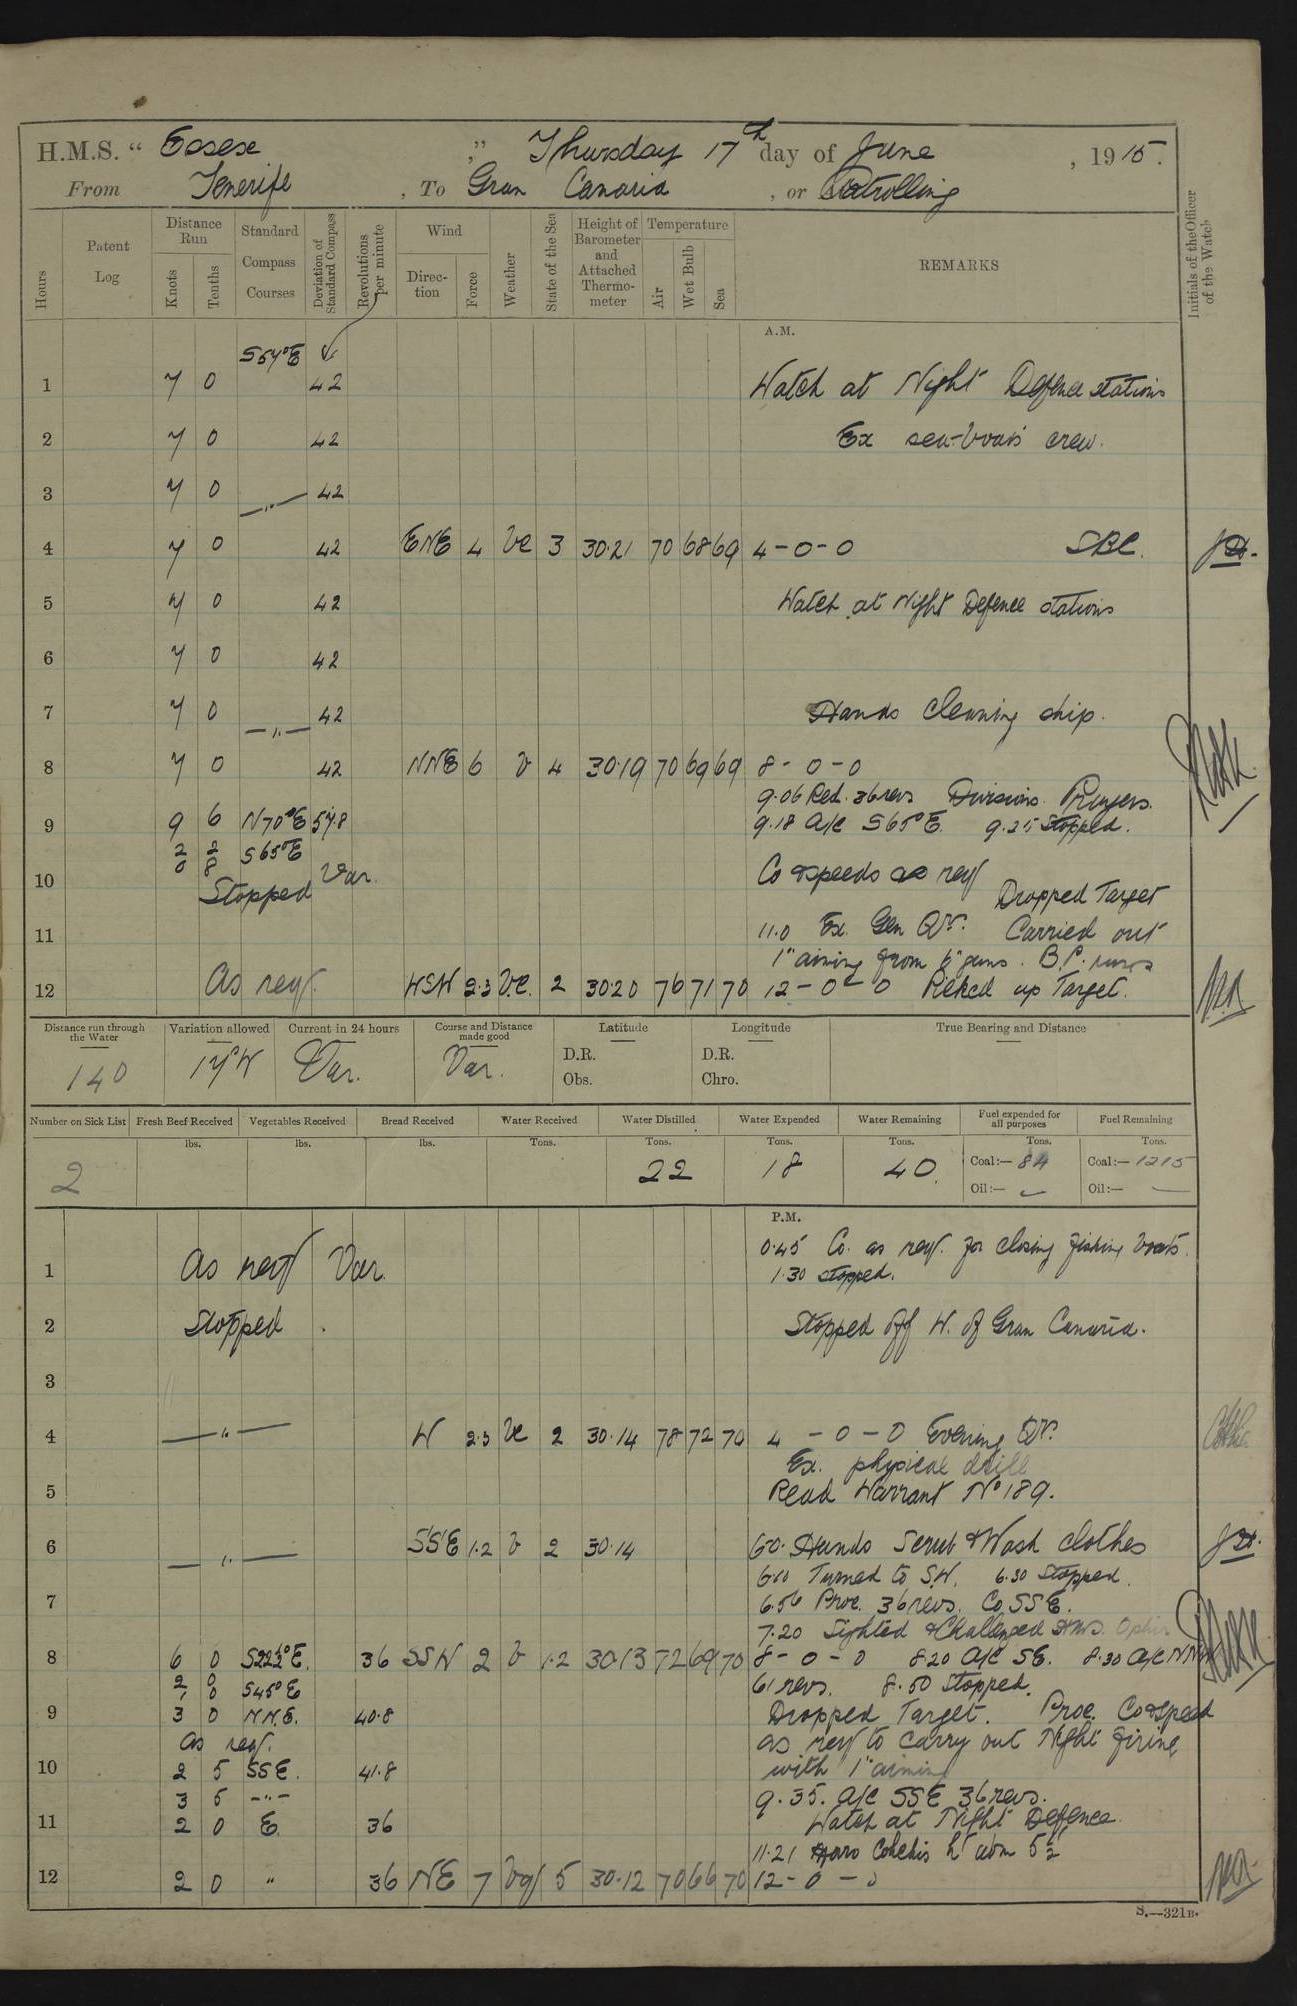 H.M.S. “ Essex ,” Thursday 17th day of June , 1915.
From Tenerife , To Gran Canaria , or Patrolling
Hours Patent Log Distance Run Knots Tenths Standard Compass Courses Deviation of Standard Compass Revolutions per minute Wind Direction Force Weather State of the Sea Height of Barometer and Attached Thermometer Temperature Air Wet Bulb Sea REMARKS Initials of the Officer of the Watch
A.M.
S57°E
1 7 0 42 Watch at Night Defence stations
2 7 0 42 Ex sea-boats crew.
3 7 0 —„— 42
4 7 0 42 ENE 4 bc 3 30.21 70 68 69 4-0-0 SBC.
5 7 0 42 Watch at Night Defence stations
6 7 0 42
7 7 0 —„— 42 Hands cleaning ship.
8 7 0 42 NNE 6 b 4 30.19 70 69 69 8-0-0
9.06 Red. 36 revs Divisions. Prayers.
9 9 6 N70°E 57.8 9.18 A/c S65°E. 9.25 Stopped.
2 2 S65°E
0 8
10 Stopped Var. Co & speeds as req. Dropped Target
11 11.0 Ex. Gen Qrs. Carried out
1" aiming from 6" guns. B.P. runs
12 As req. WSW 2.3 b.c. 2 30.20 76 71 70 12-0-0 Picked up Target.
Distance run through the Water Variation allowed Current in 24 hours Course and Distance made good Latitude Longitude True Bearing and Distance
140 17°W Var. Var. D.R. D.R.
Obs. Chro.
Number on Sick List Fresh Beef Received Vegetables Received Bread Received Water Received Water Distilled Water Expended Water Remaining Fuel expended for all purposes Fuel Remaining
lbs. lbs. lbs. Tons. Tons. Tons. Tons. Tons. Tons.
2 22 18 40. Coal:— 84 Coal:— 1215
Oil:— Oil:—
P.M.
0.45 Co. as req. for closing fishing boats.
1 As req Var. 1.30 stopped.
2 Stopped . Stopped off W. of Gran Canaria.
3
4 —„— W 2.3 bc 2 30.14 78 72 70 4-0-0 Evening Qrs.
Ex. physical drill
5 Read Warrant No 189.
6 —„— SSE 1.2 b 2 30.14 6.0. Hands Scrub & Wash clothes
6.10 Turned to S.W. 6.30 Stopped.
7 6.56 Proc. 36 revs. Co SSE.
7.20 Sighted & Challenged HMS. Ophir
8 6 0 S22½°E. 36 SSW 2 b 1.2 30.13 72 69 70 8-0-0 8.20 A/c SE. 8.30 A/c NNW
2 0 61 revs. 8.50 Stopped.
1 0 S45°E
9 3 0 N.N.E. 40.8 Dropped Target. Proc. Co & speed
As req. as req to carry out Night firing
10 2 5 SSE. 41.8 with 1" aiming
3 5 -„- 9.35. A/c SSE 36 revs.
11 2 0 E. 36 Watch at Night Defence.
11.21 lt abm 5½'
12 2 0 „ 36 NE 7 bq 5 30.12 70 66 70 12-0-0
S.—321B.